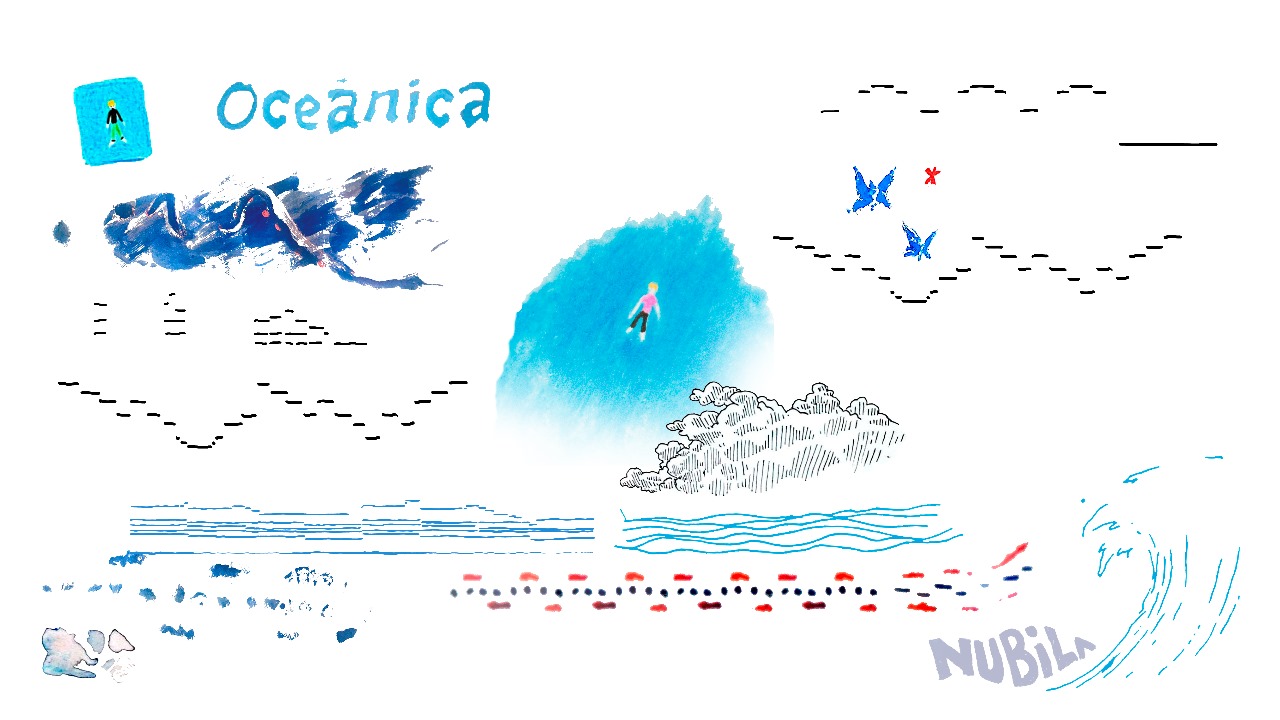 Oceânica
NUBILA